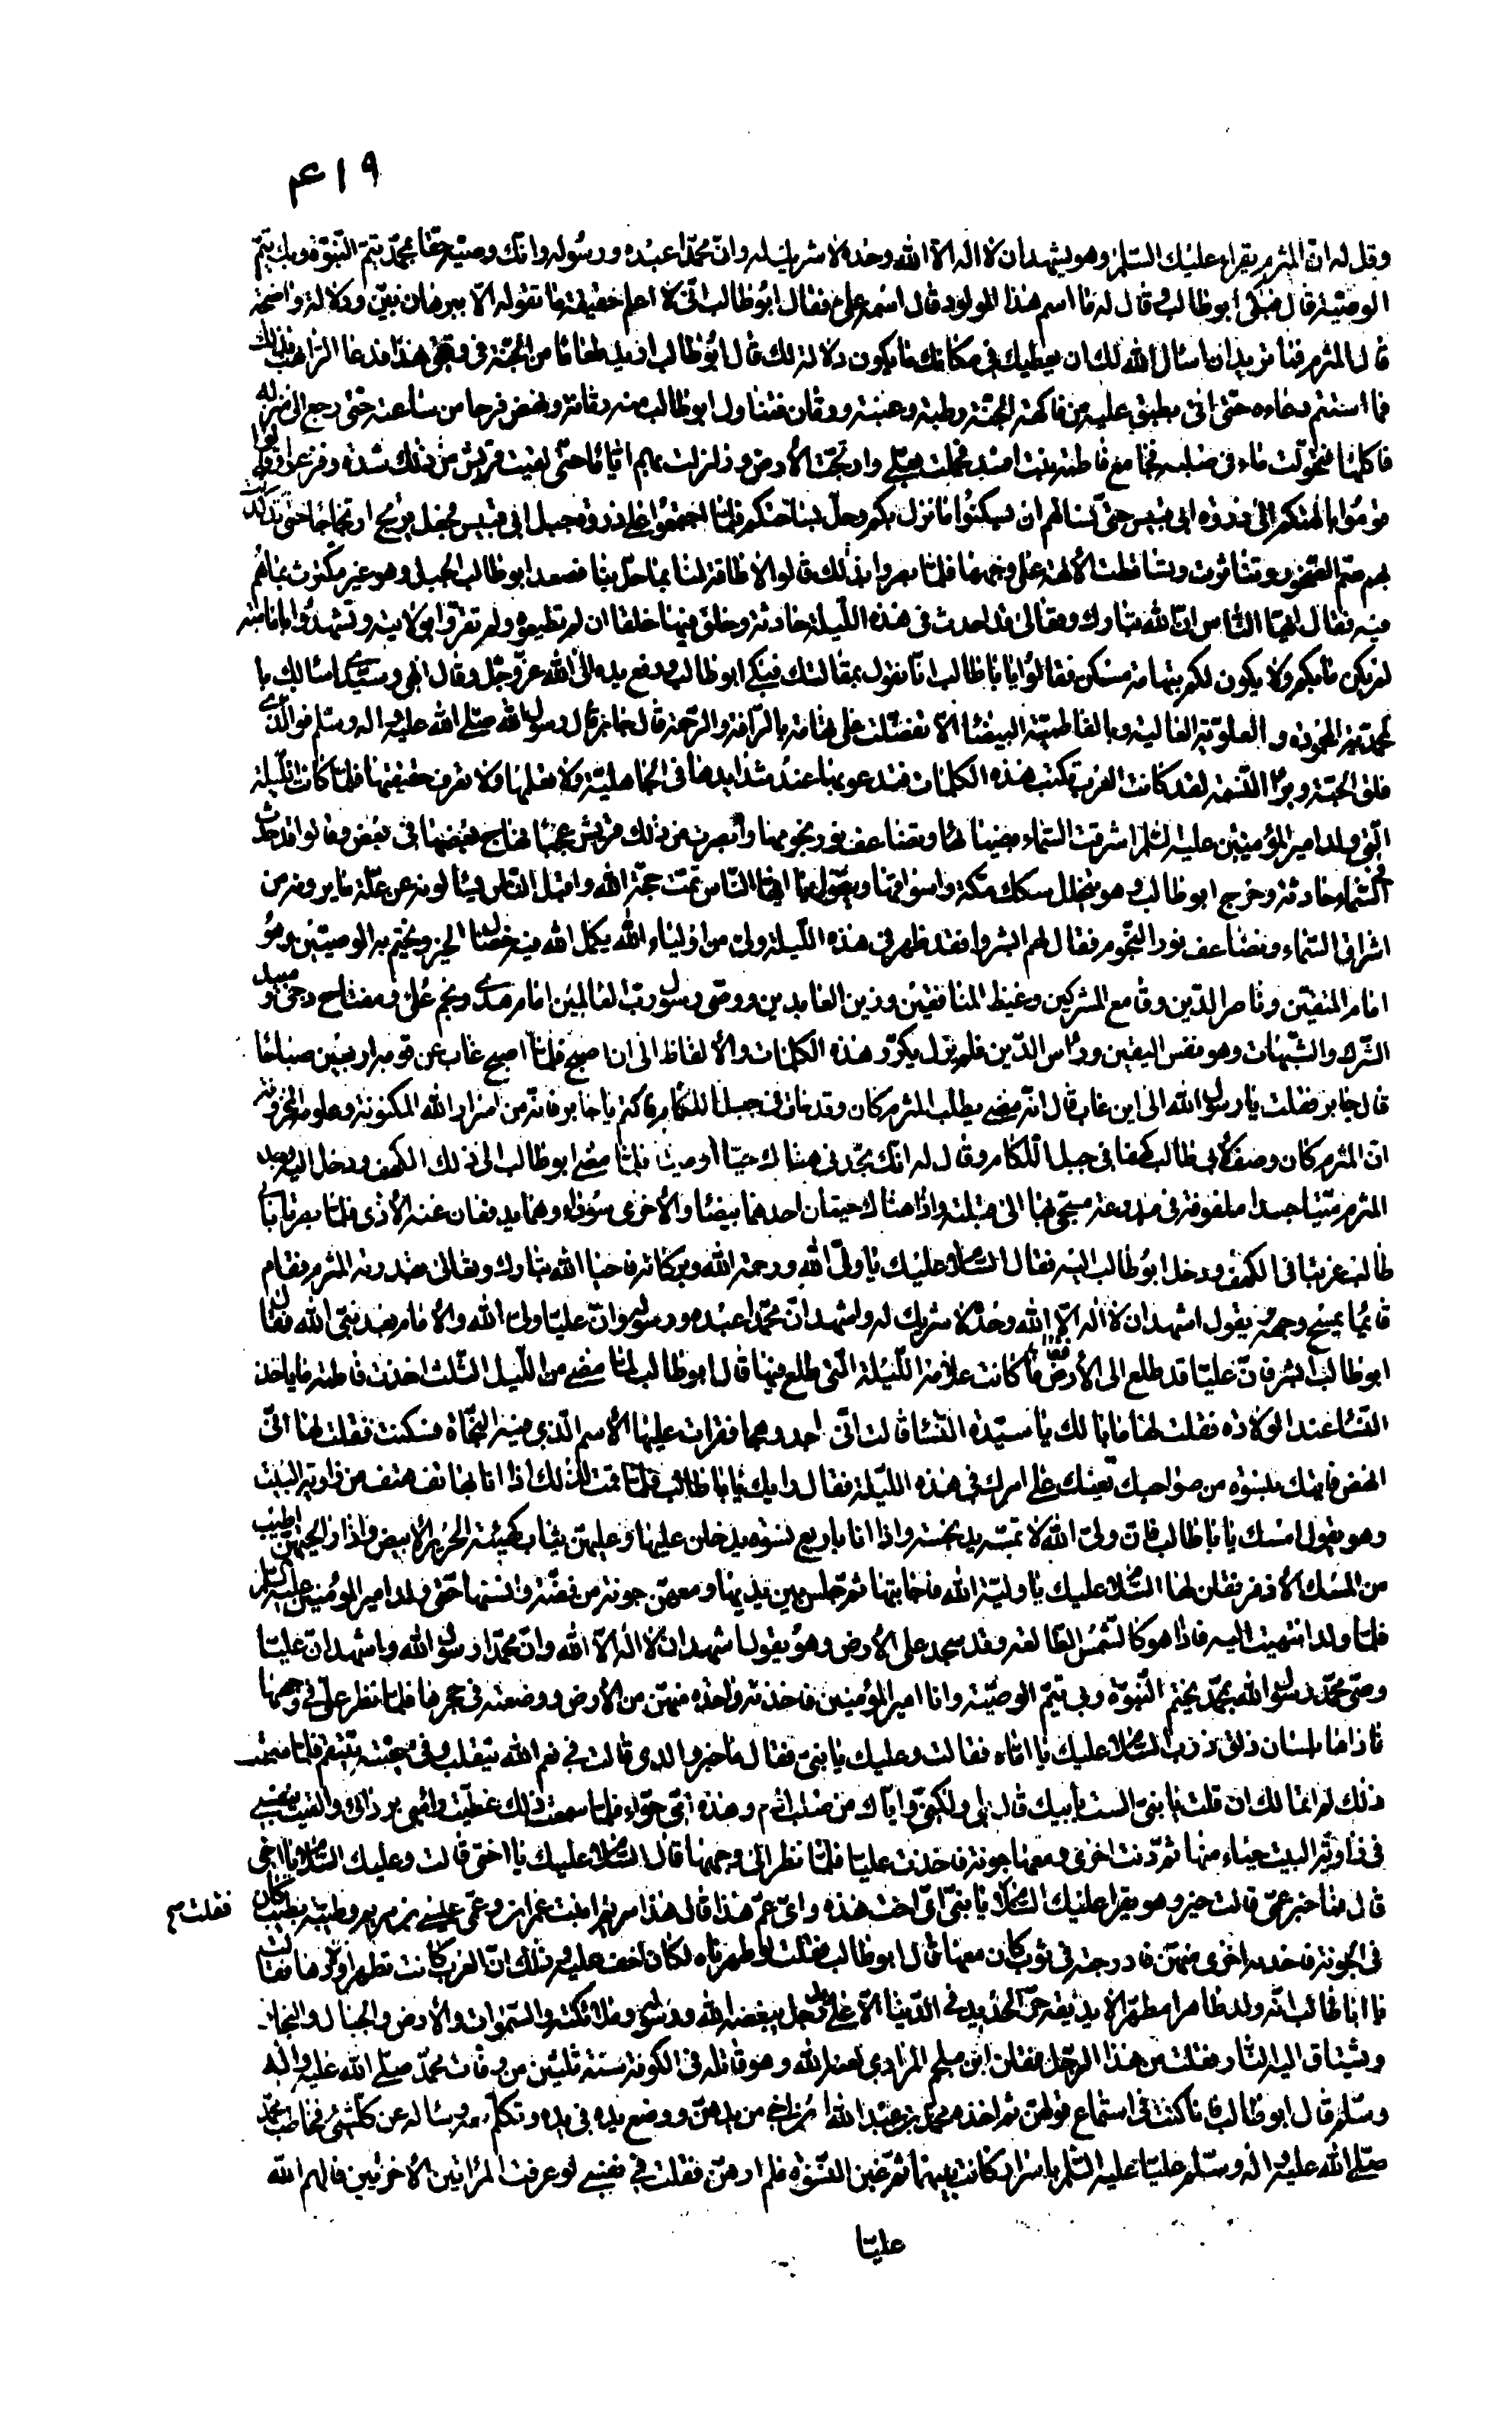 ٤١٩
وقل له انّ المثرم يقراء عليك السّلام وهو يشهد ان لا اله الّا الله وحده لا شريك له وانّ محمّدا عبده ورسوله وانّك وصيّه حقّا بمحمّد يتمّ النّبوّة وبك يتمّ
الوصيّة قال فبكى ابو طالب وقال له فما اسم هذا المولود قال اسمه علىّ فقال ابو طالب انّى لا اعلم حقيقة ما تقوله الّا ببرهان بيّن ودلالة واضحة
قال المثرم فما تريد ان اسئل الله لك ان يعطيك فى مكانك ما يكون دلالة لك قال ابو طالب اريد طعاما من الجنّة فى وقتى هذا فدعا الرّاهب بذلك
فما استتم دعاءه حتى اتى بطبق عليه من فاكهة الجنّة رطبة وعنبة ورمّان فتناول ابو طالب منه رمّانة ونهض فرحا من ساعته حتى رجع الى منزله
فاكلها فتحوّلت ماء فى صلبه فجامع فاطمة بنت اسد فحملت بعلىّ وارتجّت الأرض وزلزلت بهم ايّاما حتى لقيت قريش من ذلك شدّة وفزعوا وقالوا
قوموا بآلهتكم الى ذروة ابى قبيس حتى نسالهم ان يسكّنوا ما نزل بكم وحلّ بساحتكم فلمّا اجتمعوا على ذروة جبل ابى قبيس فجعل يرتج ارتجاجا حتى تدكدكت
بهم صمّ الصّخور وتناثرت وتساقطت الألهة على وجهها فلمّا بصروا بذلك قالوا لا طاقة لنا بما حلّ بنا فصعد ابو طالب الجبل وهو غير مكترث بما هم
فيه فقال ايّها النّاس انّ الله تبارك وتعالى قد احدث فى هذه اللّيلة حادثة وخلق فيها خلقا ان لم تطيعوه ولم تقرّوا بولايته وتشهدوا بامامته
لم يكن ما بكم ولا يكون لكم بتهامة مسكن فقالوا يا ابا طالب انّا نقول بمقالتك فبكى ابو طالب ورفع يده الى الله عزّ وجلّ وقال الهى وسيّدى اسالك با
لمحمّديّة المحمودة وبالعلويّة العالية وبالفاطميّة البيضاء الّا تفضّلت على تهامة بالرّافة والرّحمة قال جابر قال رسول الله صلى الله عليه واله وسلم فوالذى
فلق الحبّة وبرأ النّسمة لقد كانت العرب تكتب هذه الكلمات فتدعو بها عند شدايدها فى الجاهليّة ولا تعلمها ولا تعرف حقيقتها فلمّا كانت اللّيلة
الّتى ولد امير المؤمنين عليه السّلام اشرقت السّماء بضيائها وتضاعف نور نجومها وابصرت من ذلك قريش عجبا فهاج بعضها فى بعض وقالوا قد حدث
فى السّماء حادثة وخرج ابو طالب وهو يتخلل سكك مكّة واسواقها ويقول يا ايّها النّاس تمّت حجّة الله واقبل النّاس يسئالونه عن علّة ما يرونه من
اشراق السّماء وتضاعف نور النّجوم فقال لهم ابشروا فقد ظهر فى هذه اللّيلة ولىّ من اولياء الله يكمل الله فيه خصال الخير ويختم به الوصيّين وهو
امام المتّقين وناصر الدّين وقامع المشركين وغيظ المنافقين وزين العابدين ووصى رسول ربّ العالمين امام هدى ونجم على ومفتاح دجى ومبيد
الشّرك والشّبهات وهو نفس اليقين وراس الدّين فلم يزل يكرّر هذه الكلمات والألفاظ الى ان اصبح فلمّا اصبح غاب عن قومه اربعين صباحا
قال جابر فقلت يا رسول الله الى اين غاب قال انّه مضى يطلب المثرم كان وقد مات فى جبل اللكام فاكتم يا جابر فانّه من اسرار الله المكنونة وعلومه المخزونة
انّ المثرم كان وصف لأبى طالب كهفا فى جبل اللكام وقال له انّك تجدنى هناك حيّا او ميتا فلمّا مضى ابو طالب الى ذلك الكهف ودخل اليه وجد
المثرم ميّتا جسدا ملفوفة فى مدرعته مسجّى بها الى قبلته واذا هناك حيتان احدهما بيضاء والأخرى سوداء وهما يدفعان عنه الأذى فلمّا بصرتا بابى
طالب غربتا فى الكهف ودخل ابو طالب اليه فقال السّلام عليك يا ولىّ الله ورحمة الله وبركاته فاحيا الله تبارك وتعالى بقدرته المثرم فقام
قائما يمسح وجهه يقول اشهد ان لا اله الّا الله وحده لا شريك له واشهد انّ محمّدا عبده ورسوله وانّ عليّا ولىّ الله والامام بعد نبىّ الله فقال
ابو طالب ابشر فانّ عليّا قد طلع الى الأرض فقال ما كانت علامة اللّيلة الّتى طلع فيها قال ابو طالب لمّا مضى من اللّيل الثّلث اخذت فاطمة ما ياخذ
النّساء عند الولادة فقلت لها ما بالك يا سيّدة النّساء قالت انّى اجد وهجا فقرات عليها الأسم الّذى فيه النّجاة فسكنت فقلت لها انّى
انهض فاتيك بنسوة من صواحبك تعينك على امرك فى هذه اللّيلة فقال رايك يا ابا طالب فلمّا قمت لذلك اذا انا بهاتف هتف من زاوية البيت
وهو يقول امسك يا ابا طالب فانّ ولىّ الله لا تمسّه يد نجسة واذا انا باربع نسوة يدخلن عليها وعليهنّ ثياب كهيئة الحرير الأبيض واذا رايحتهنّ اطيب
من المسك الأذفر فقلن لها السّلام عليك يا وليّة الله فاجابتها ثم جلس بين يديها ومعهنّ جونة من فضّة وانسنها حتى ولد امير المؤمنين عليه السّلام
فلمّا ولد انتهيت اليه فاذا هو كالشّمس الطّالعة وقد سجد على الأرض وهو يقول اشهد ان لا اله الّا الله وانّ محمّدا رسول الله واشهد انّ عليّا
وصىّ محمّد رسول الله بمحمّد يختم النّبوّة وبى تتمّ الوصيّة وانا امير المؤمنين فاخذته واحدة منهنّ من الأرض ووضعته فى حجرها فلمّا نظر علىّ فى وجهها
ناداها بلسان ذلق ذرب السّلام عليك يا امّاه فقالت وعليك يا بنىّ فقال ما خبر والدى قالت فى نعم الله يتقلب وفى صحبته يتنعم فلمّا سمعت
ذلك لم اتمالك ان قلت يا بنىّ الست بابيك قال بلى ولكنّى وايّاك من صلب ادم وهذه امّى حوّاء فلمّا سمعت ذلك غطّيت راسى بردائى والقيت نفسى
فى زاوية البيت حياء منها ثم دنت اخرى ومعها جونة فاخذت عليّا فلمّا نظر الى وجهها قال السّلام عليك يا اختى قالت وعليك السّلام يا اخى
قال فما خبر عمّى قالت خير وهو يقرا عليك السّلام فقلت يا بنىّ اىّ اخت هذه واىّ عمّ هذا قال هذه مريم ابنت عمران وعمّى عيسى بن مريم وطيّبته بطيب كان
فى الجونة فاخذته اخرى منهنّ فادرجته فى ثوب كان معها قال ابو طالب فقلت لو طهرناه لكان اخف عليه وذلك انّ العرب كانت تطهر اولادها فقالت
يا ابا طالب انّه ولد طاهرا مطهّرا لا يذيقه حرّ الحديد فى الدّنيا الّا على يد رجل يبغضه الله ورسوله وملائكته والسّموات والأرض والجبال والبحار
ويشتاق اليه النّار فقلت من هذا الرّجل فقلن ابن ملجم المرادى لعنه الله وهو قاتله فى الكوفة سنة ثلثين من وفات محمّد صلى الله عليه واله
وسلّم قال ابو طالب فانا كنت فى استماع قولهنّ ثم اخذه محمّد بن عبد الله ابن اخى من يدهنّ ووضع يده فى يده وتكلّم معه وساله عن كلّ شىء فخاطب محمّد
صلى الله عليه واله وسلّم عليّا عليه السّلم باسرار كانت بينهما ثم غبن النّسوة فلم ارهنّ فقلت فى نفسى لو عرفت المراتين الأخرتين فالهم الله
عليّا